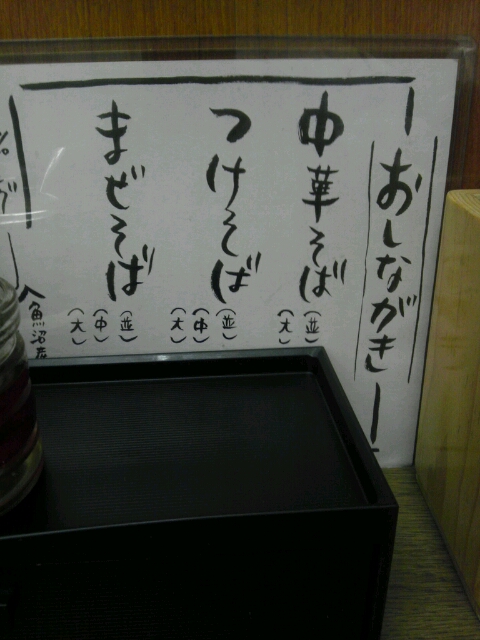 おしながき
中華そば
（並）
（大）
つけそば
（並）
（中）
（大）
まぜそば
（並）
（中）
（大）
魚沼産